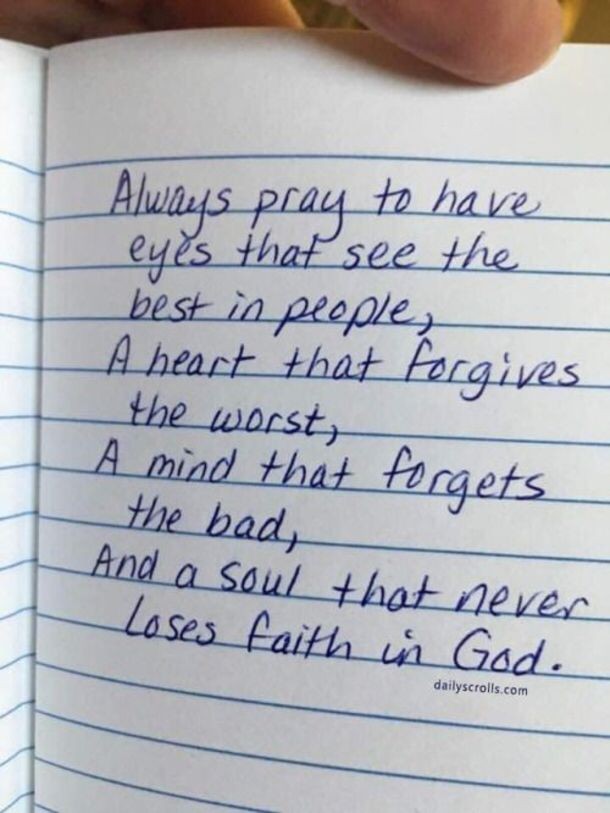 Always pray to have
eyes that see the
best in people,
A heart that forgives
the worst,
A mind that forgets
the bad,
And a soul that never
Loses faith in God.
dailyscrolls.com